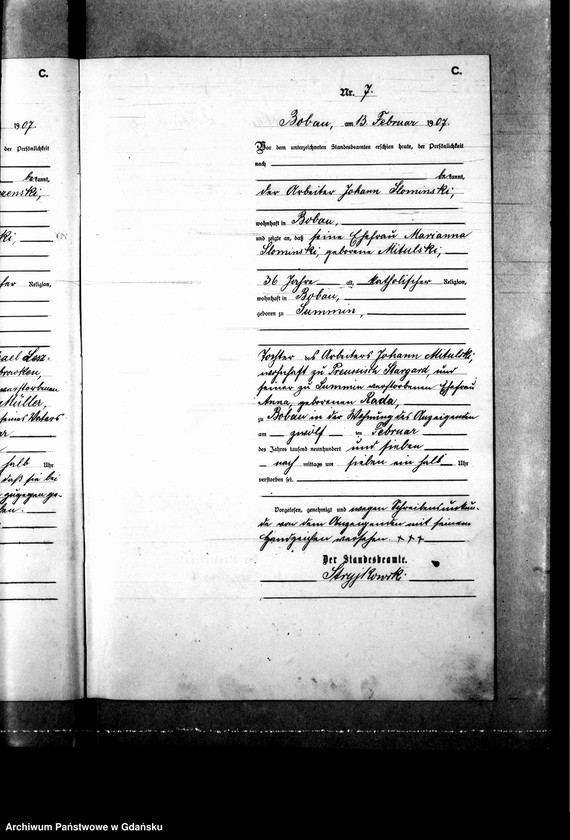 C.
1907.
der Persönlichkeit
bekannt,
ki,
Religion,
Müller,
seines Vaters
halb Uhr
daß sie bei
zugegen ge-
C.
Nr. 7.
Bobau, am 13. Februar 1907.
Vor dem unterzeichneten Standesbeamten erschien heute, der Persönlichkeit
nach
bekannt,
der Arbeiter Johann Slominski,
wohnhaft in Bobau,
und zeigte an, daß seine Ehefrau Marianna
Slominski, geborene Mitulski,
36 Jahre alt, katholischer Religion,
wohnhaft in Bobau,
geboren zu Summin,
Tochter des Arbeiters Johann Mitulski,
wohnhaft zu Preussisch Stargard, und
seiner zu Summin verstorbenen Ehefrau
Anna, geborenen Rada,
zu Bobau in der Wohnung des Anzeigenden
am zwölften Februar
des Jahres tausend neunhundert und sieben
nach mittags um sieben ein halb Uhr
verstorben sei.
Vorgelesen, genehmigt und wegen Schreibensunkun-
de von dem Anzeigenden mit seinem
Handzeichen versehen. +++
Der Standesbeamte.
Stryjkowski.
Archiwum Państwowe w Gdańsku